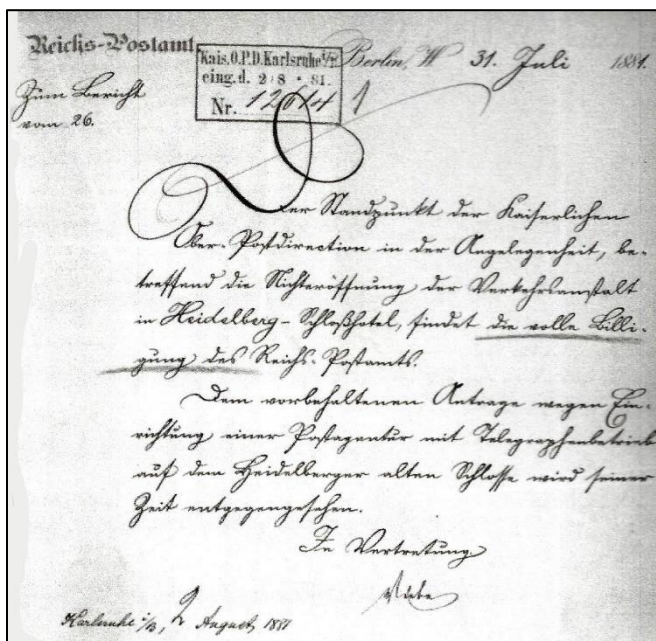 Reichs-Postamt
Kais. O.P.D. Karlsruhe i/B.
eing. d. 2/8 * 81.
Nr. 12614
Berlin, W 31. Juli 1881.
1
Zum Bericht
vom 26.
Der Standpunkt der Kaiserlichen
Ober-Postdirection in der Angelegenheit, be-
treffend die Nichteröffnung der Verkehrsanstalt
in Heidelberg-Schloßhotel, findet die volle Billi-
gung des Reichs-Postamts.
Dem vorbehaltenen Antrage wegen Ein-
richtung einer Postagentur mit Telegraphenbetrieb
auf dem Heidelberger alten Schlosse wird seiner
Zeit entgegengesehen.
In Vertretung
Karlsruhe i/B, 2 August 1881